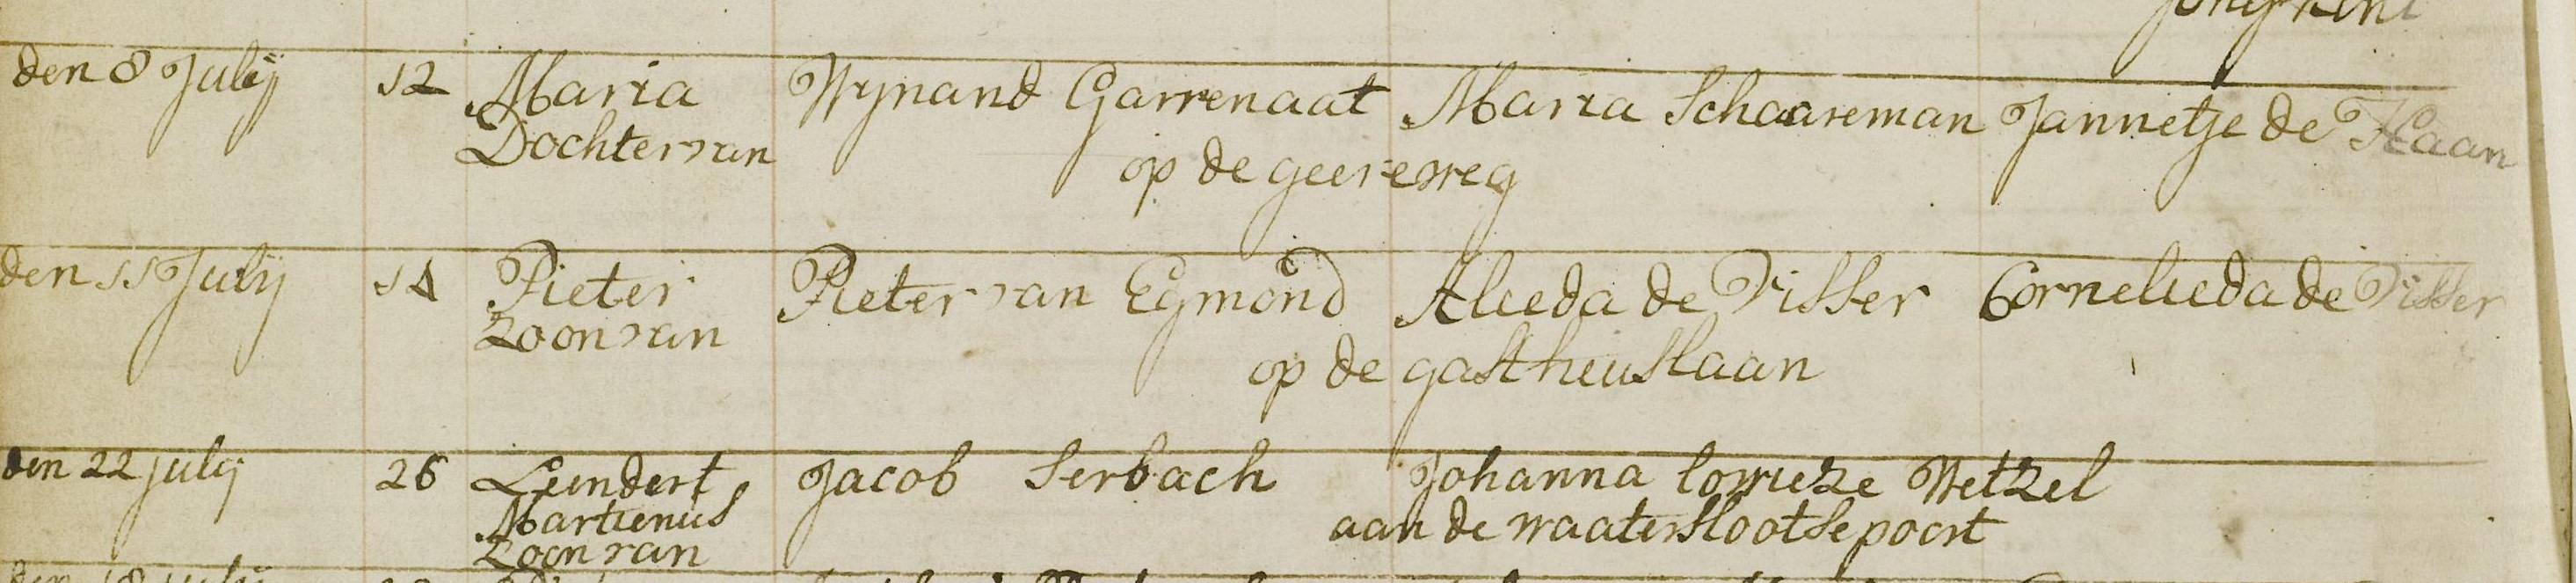 den 8 Julij 12 Maria Wynand Garrenaat Maria Schaareman Jannetje de Haan
Dochter van op de geereweg
den 11 Julij 14 Pieter Pieter van Egmond Alieda de Visser Cornelieda de Visser
Zoon van op de gastheuslaan
den 22 julij 26 Leendert Jacob Serbach Johanna lowieze Wetzel
Martienus aan de waaterslootse poort
Zoon van